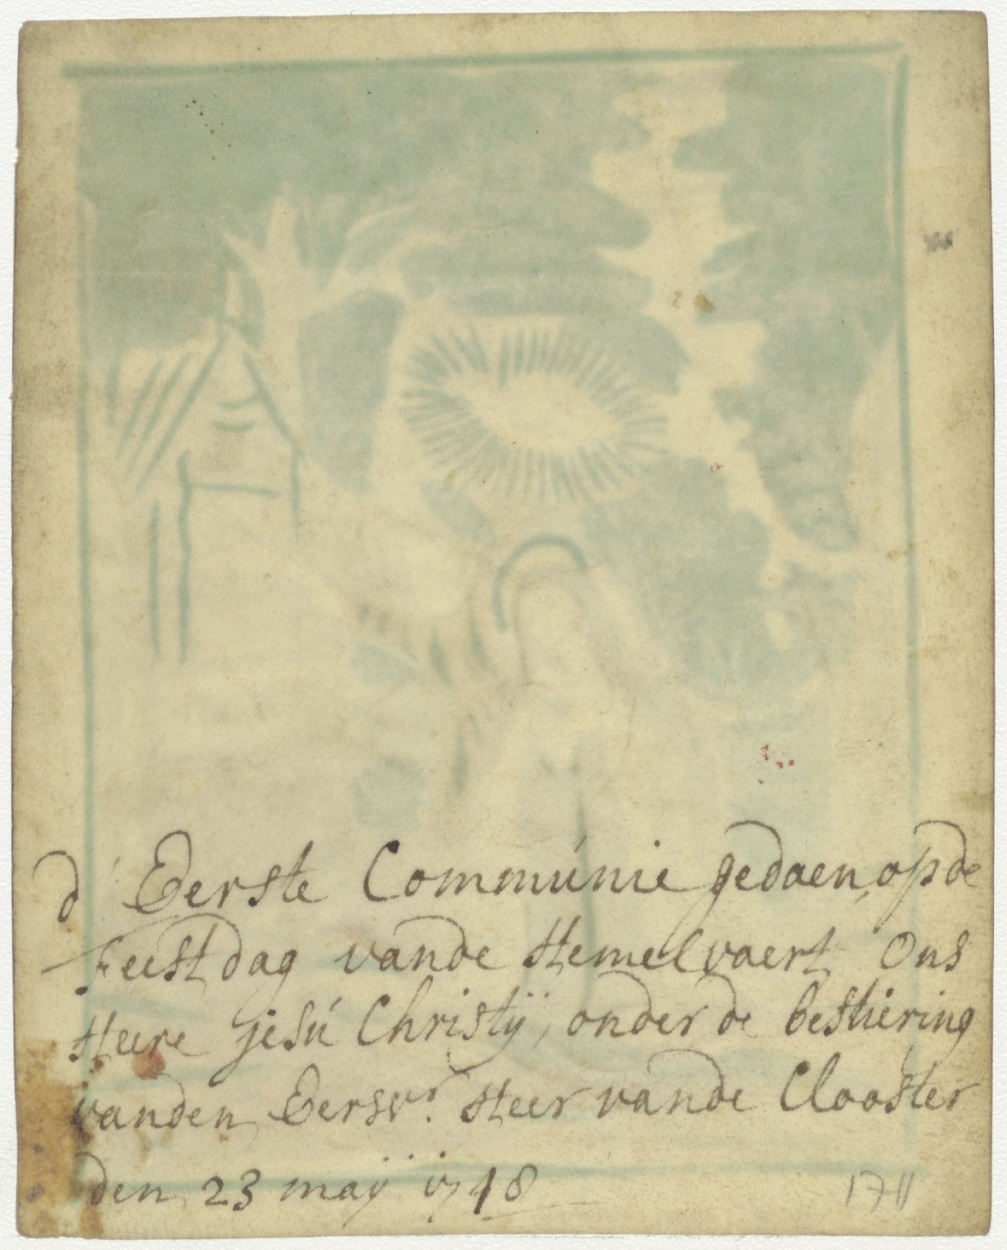 d' Eerste Commúnie gedaen, op de
feestdag vande Hemelvaert Ons
Heere Jesú Christÿ, onder de bestiering
vanden Eerwr. Heer vande Clooster
den 23 maÿ 1748
1711